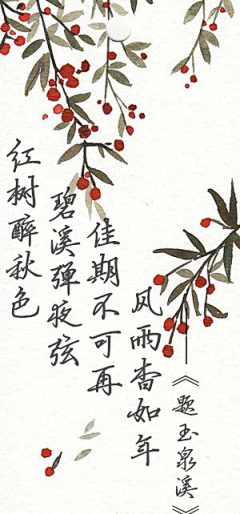 红树醉秋色
碧溪弹夜弦
佳期不可再
风雨杳如年
——《题玉泉溪》